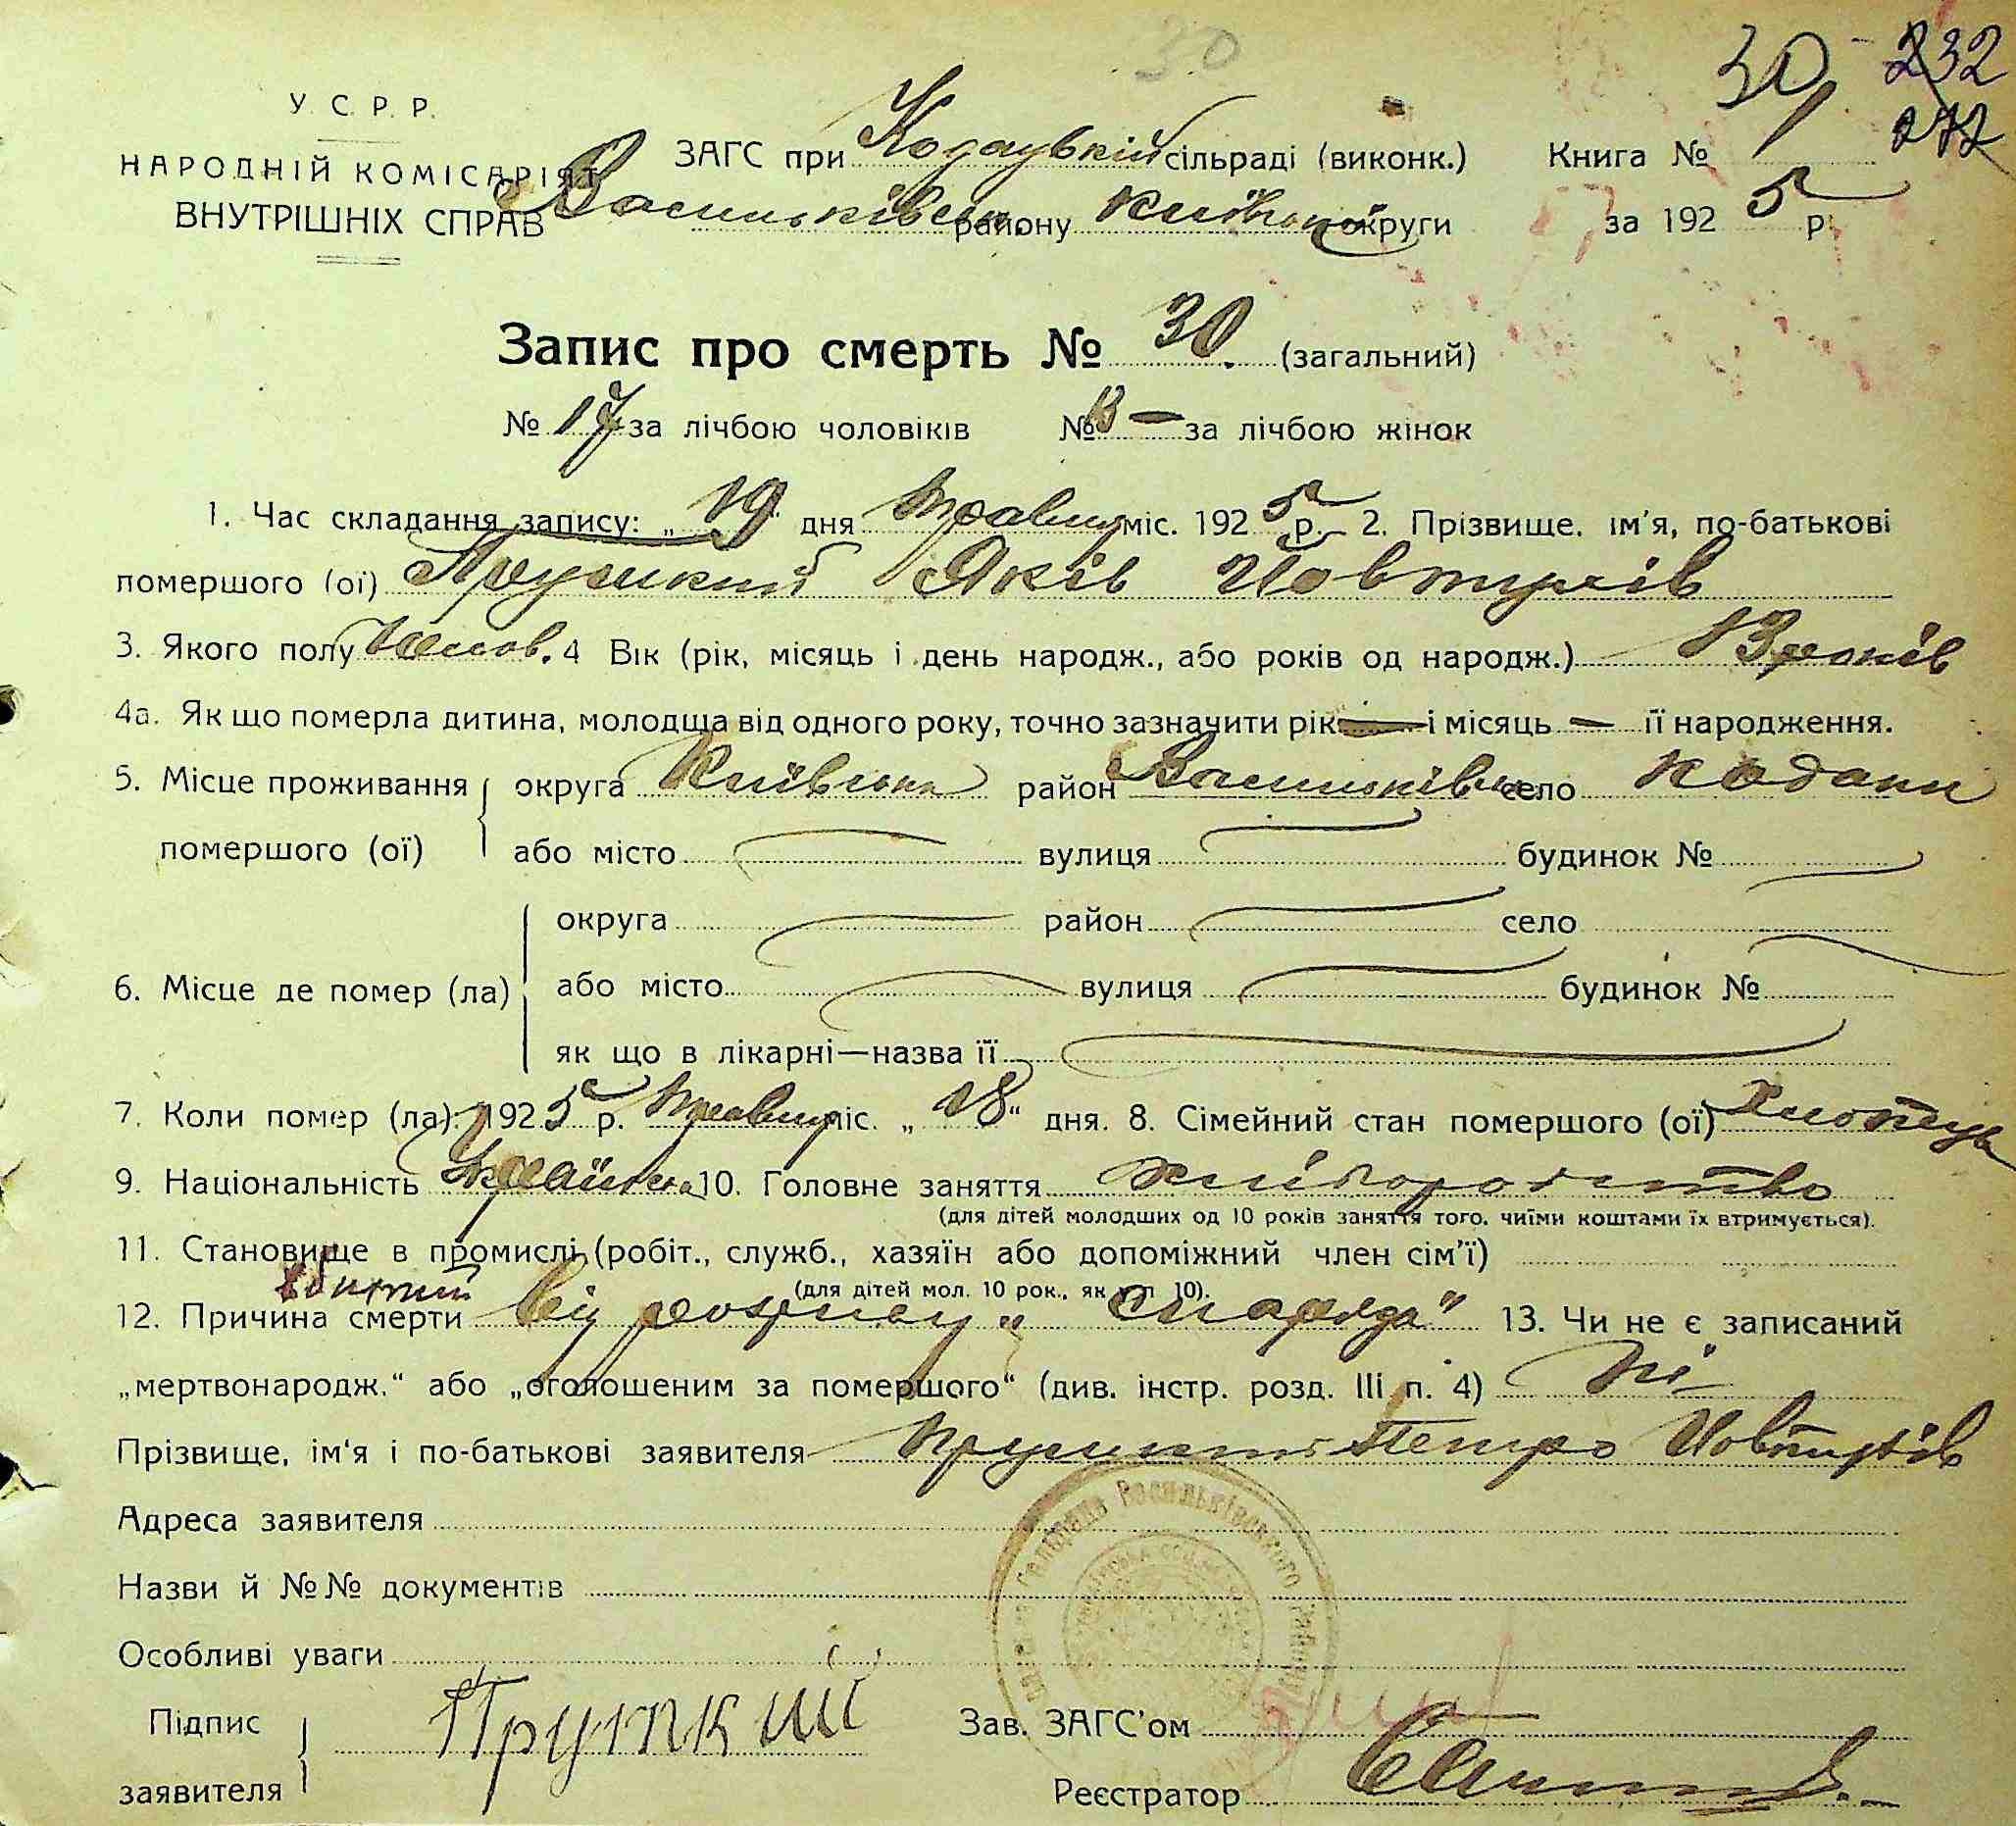 30
30 232
272
У. С. Р. Р.
НАРОДНІЙ КОМІСАРІЯТ
ВНУТРІШНІХ СПРАВ
ЗАГС при Кодацькій сільраді (виконк.) Книга № 1
Васильківськ району Київської округи за 1925 р.
Запис про смерть № 30. (загальний)
№ 17 за лічбою чоловіків № 13 — за лічбою жінок
1. Час складання запису: „19" дня травня міс. 1925 р. 2. Прізвище, ім'я, по-батькові
помершого (ої) Яків Йовтухів
3. Якого полу Чолов. 4 Вік (рік, місяць і день народж., або років од народж.) 13 років
4а. Як що померла дитина, молодща від одного року, точно зазначити рік — і місяць — її народження.
5. Місце проживання помершого (ої) округа Київська район Васильківськ село Кодаки
або місто вулиця будинок №
6. Місце де помер (ла) округа район село
або місто вулиця будинок №
як що в лікарні—назва її
7. Коли помер (ла): 1925 р. травня міс. „18" дня. 8. Сімейний стан помершого (ої) Хлопець
9. Національність Українська 10. Головне заняття хліборобство
(для дітей молодших од 10 років заняття того, чиїми коштами їх втримується).
11. Становище в промислі (робіт., служб., хазяїн або допоміжний член сім'ї)
(для дітей мол. 10 рок., як у п 10).
вбитий
12. Причина смерти від розриву „снаряда" 13. Чи не є записаний
„мертвонародж." або „оголошеним за помершого" (див. інстр. розд. III п. 4) Ні
Прізвище, ім'я і по-батькові заявителя Петро Йовтухів
Адреса заявителя
Назви й №№ документів
Особливі уваги
Підпис заявителя Зав. ЗАГС'ом
Реєстратор
Сільрада Васильківського Району